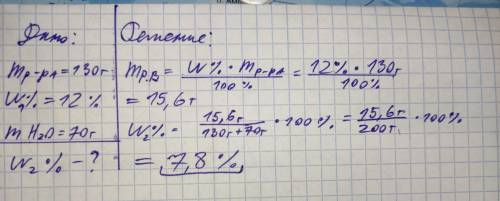 Дано:
mр-ра=130г
W₁%=12%
mH₂O=70г
W₂%-?
Решение:
mр.в= W%·mр-ра / 100% = 12%·130г / 100%
=15,6г
W₂%= 15,6г / 130г+70г ·100% = 15,6г / 200г. ·100%
= 7,8%